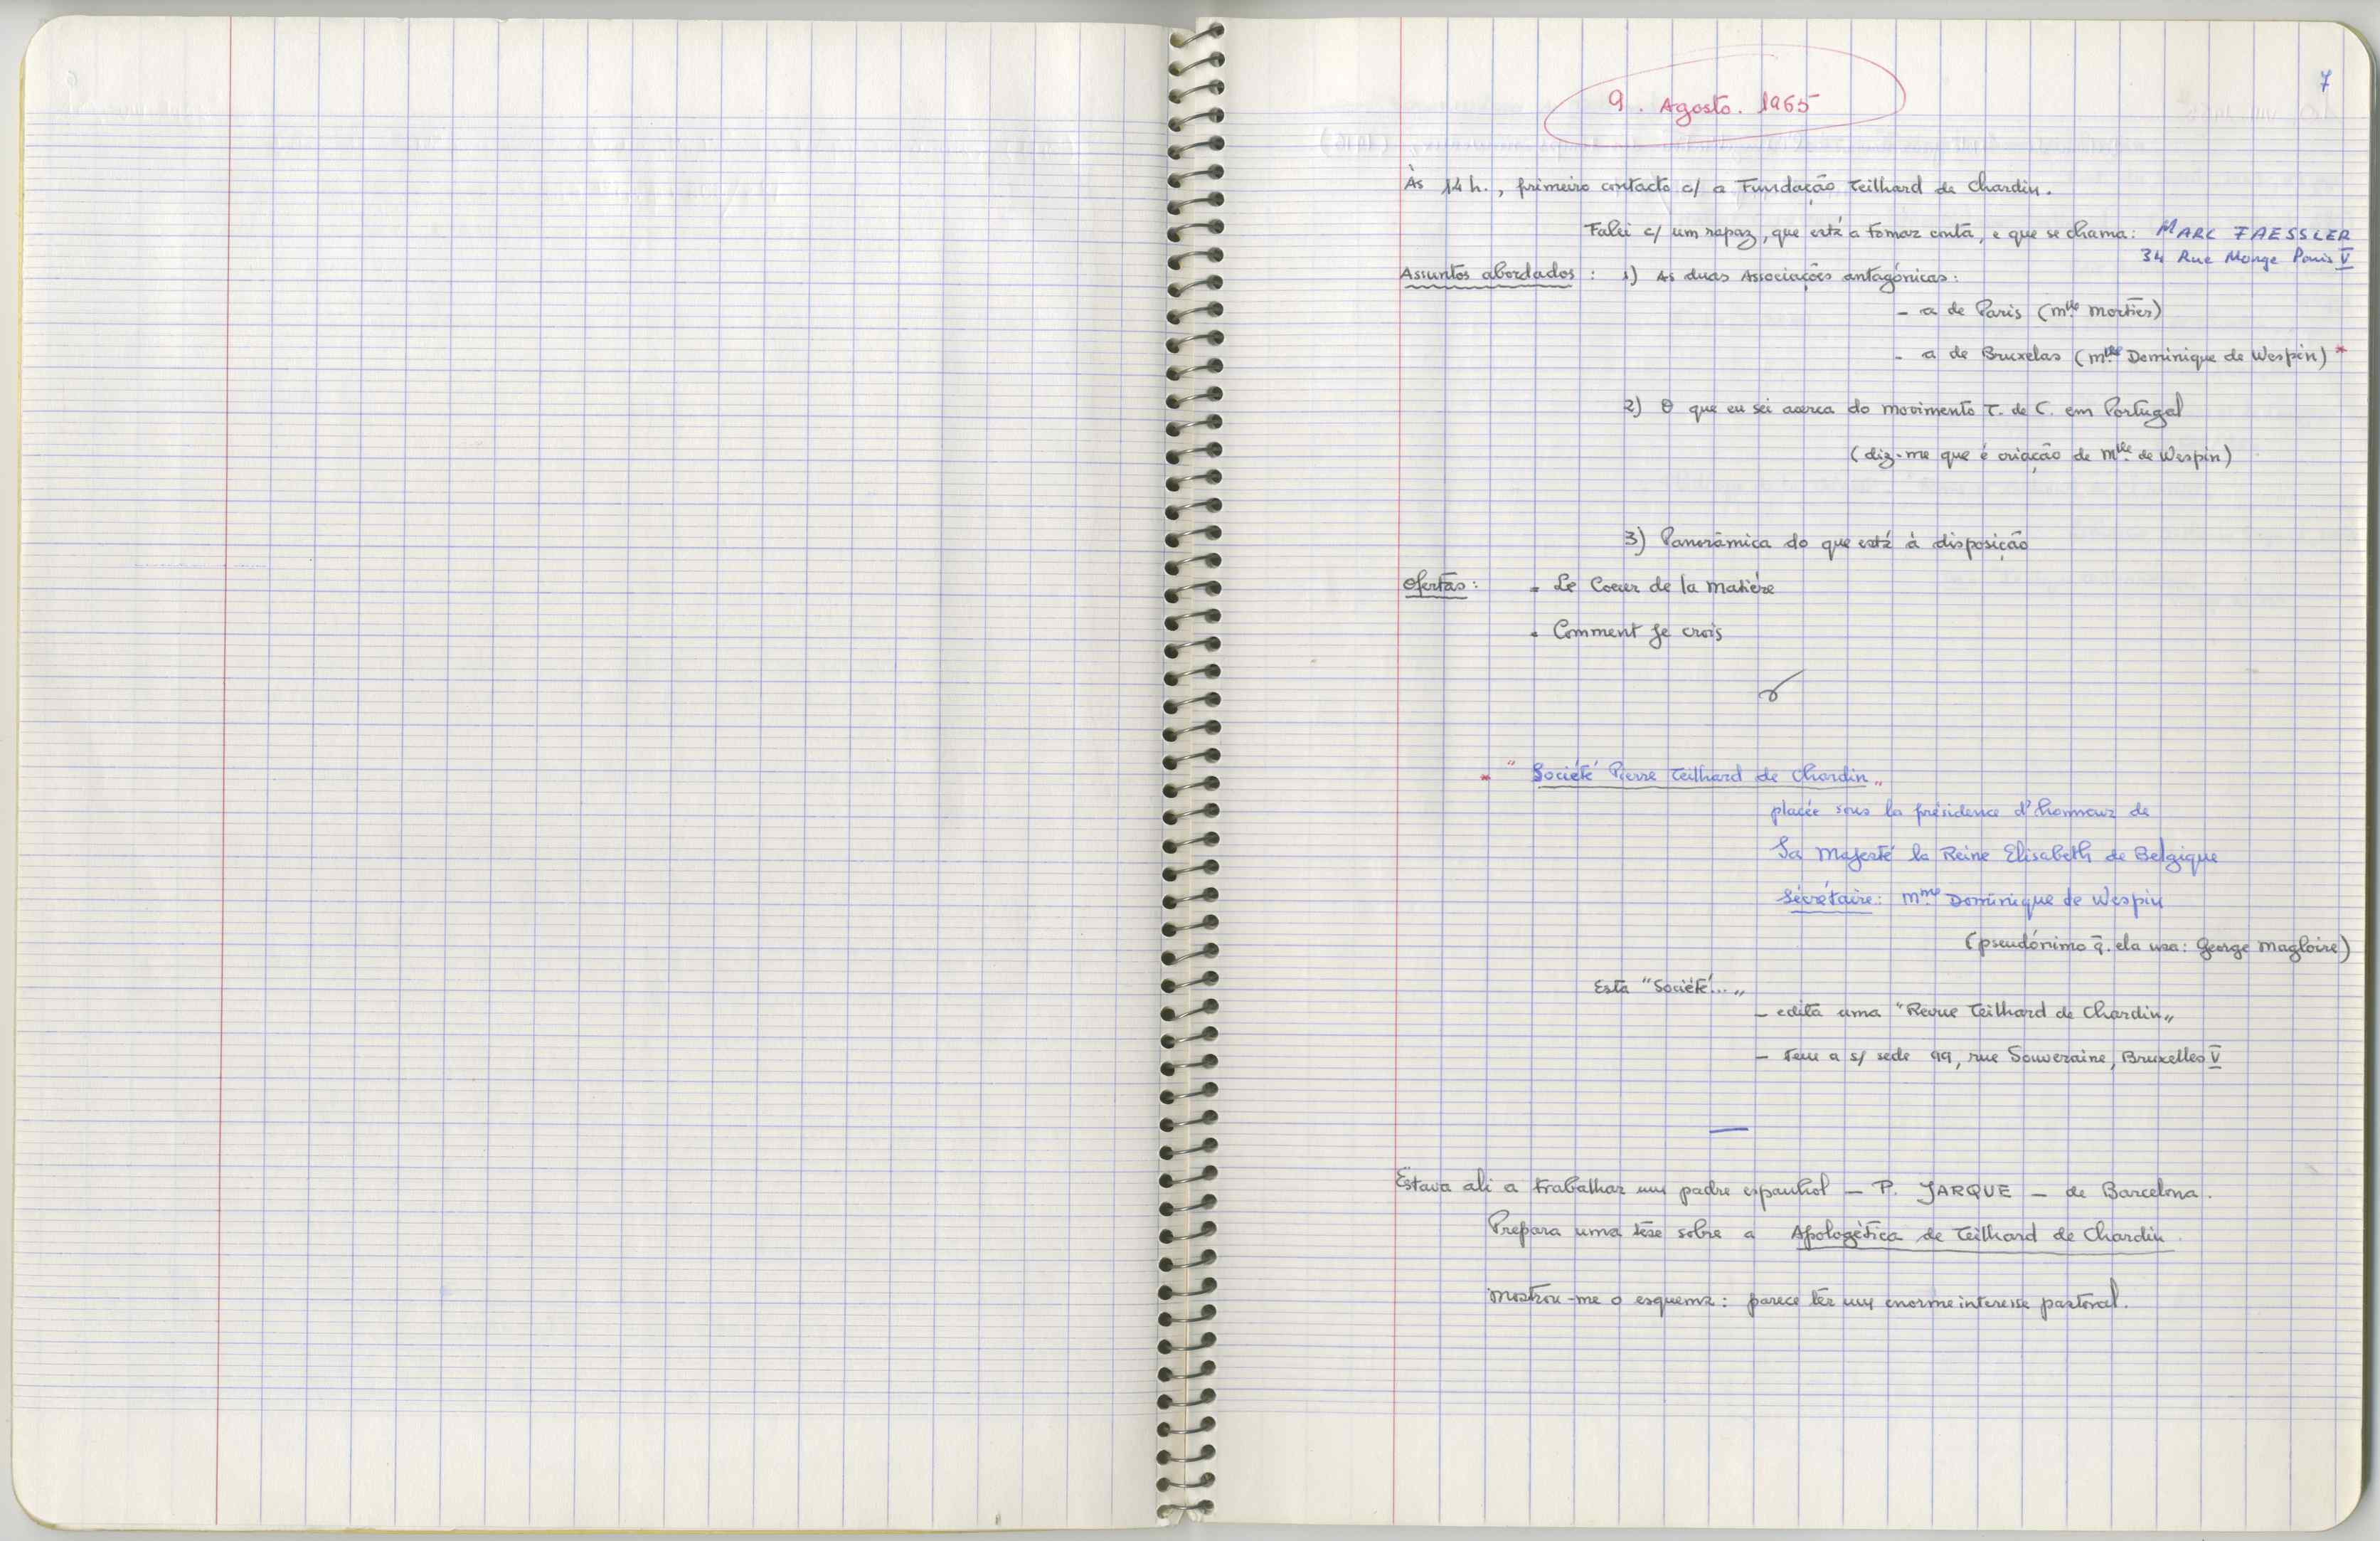 7
9. Agosto. 1965
Às 14 h., primeiro contacto c/ a Fundação Teilhard de Chardin.
Falei c/ um rapaz, que está a tomar conta, e que se chama: MARC FAESSLER
34 Rue Monge Paris V
Assuntos abordados : 1) As duas Associações antagónicas:
- a de Paris (Mlle Mortier)
- a de Bruxelas (Mlle Dominique de Wespin) *
2) O que eu sei acerca do movimento T. de C. em Portugal
(diz-me que é criação de Mlle de Wespin)
3) Panorâmica do que está à disposição
Ofertas: - Le Coeur de la Matière
- Comment je crois
* "Société Pierre Teilhard de Chardin"
placée sous la présidence d'honneur de
Sa Majesté la Reine Elisabeth de Belgique
Sécrétaire: Mme Dominique de Wespin
(pseudónimo q̃. ela usa: George Magloire)
Esta "Société..."
- edita uma "Revue Teilhard de Chardin"
- tem a s/ sede 99, rue Souveraine, Bruxelles V
Estava ali a trabalhar um padre espanhol - P. JARQUE - de Barcelona.
Prepara uma tese sobre a Apologètica de Teilhard de Chardin
Mostrou-me o esquema: parece têr um enorme interesse pastoral.